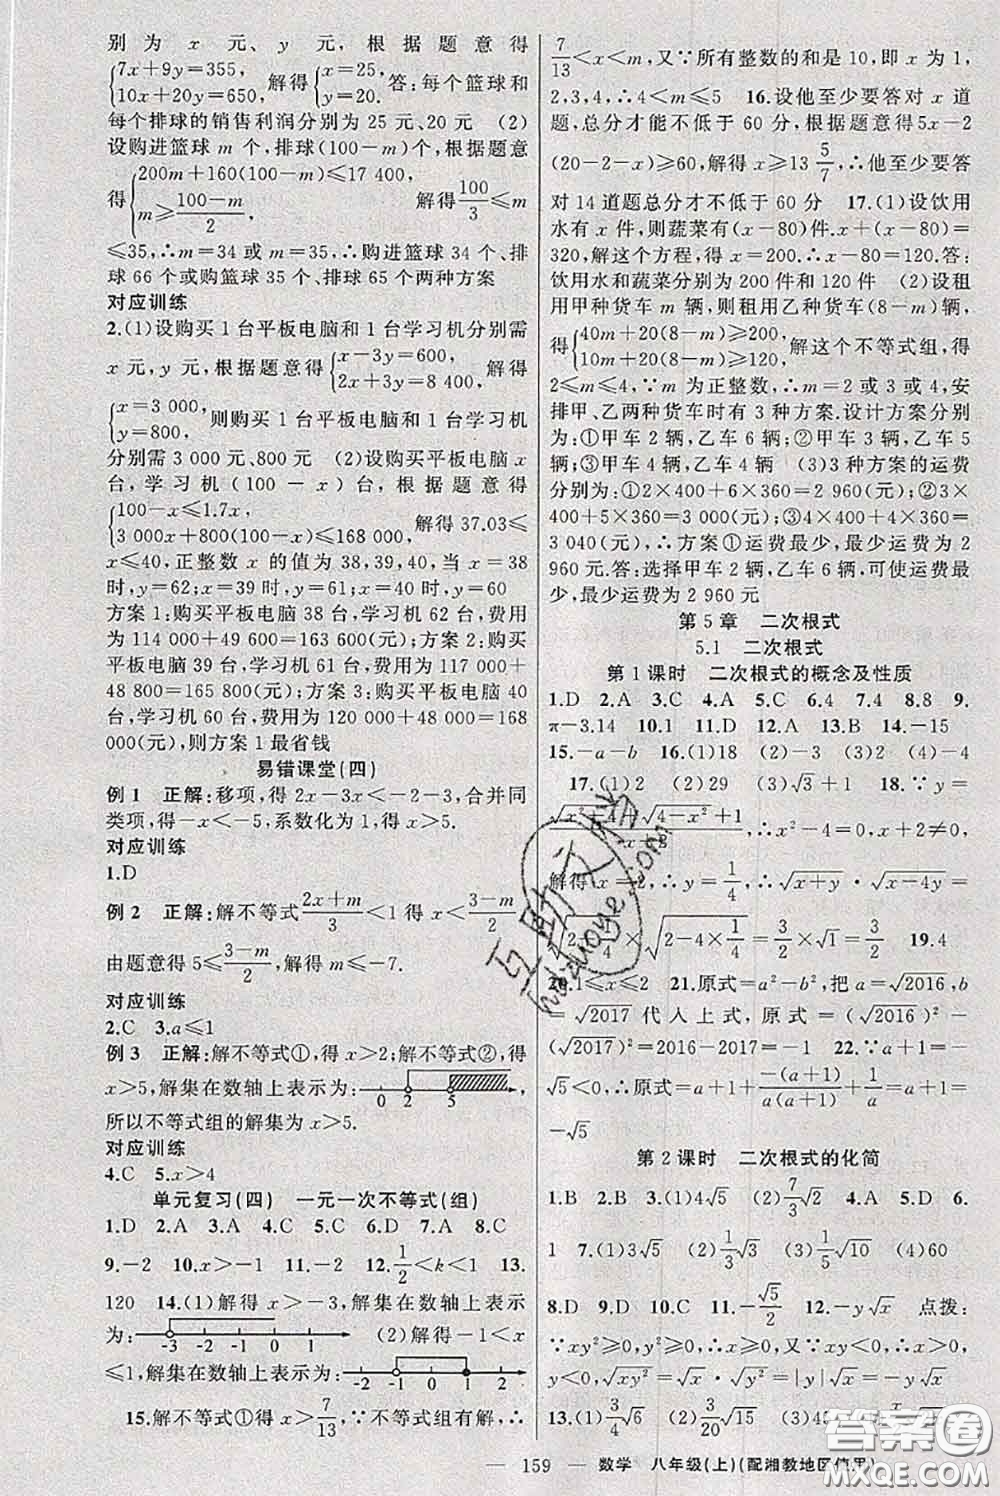 别为 x 元、y 元,根据题意得
{7x+9y=355, 10x+20y=650, 解得{x=25, y=20. 答:每个篮球和
每个排球的销售利润分别为 25 元、20 元 (2)
设购进篮球 m 个,排球(100-m)个,根据题意
得{200m+160(100-m)≤17 400, m≥(100-m)/2, 解得100/3≤m
≤35,∴m=34 或 m=35,∴购进篮球 34 个、排
球 66 个或购篮球 35 个、排球 65 个两种方案
对应训练
2.(1)设购买 1 台平板电脑和 1 台学习机分别需
x 元,y 元,根据题意得{x-3y=600, 2x+3y=8 400, 解得
{x=3 000, y=800, 则购买 1 台平板电脑和 1 台学习机
分别需 3 000 元、800 元 (2)设购买平板电脑 x
台,学习机(100-x)台,根据题意得
{100-x≤1.7x, 3 000x+800(100-x)≤168 000, 解得 37.03≤
x≤40,正整数 x 的值为 38,39,40,当 x=38
时,y=62;x=39 时,y=61;x=40 时,y=60
方案 1:购买平板电脑 38 台,学习机 62 台,费用
为 114 000+49 600=163 600(元);方案 2:购买
平板电脑 39 台,学习机 61 台,费用为 117 000+
48 800=165 800(元);方案 3:购买平板电脑 40
台,学习机 60 台,费用为 120 000+48 000=168
000(元),则方案 1 最省钱
易错课堂(四)
例 1 正解:移项,得 2x-3x<-2-3,合并同
类项,得-x<-5,系数化为 1,得 x>5.
对应训练
1.D
例 2 正解:解不等式(2x+m)/3<1 得 x<(3-m)/2
由题意得 5≤(3-m)/2,解得 m≤-7.
对应训练
2.C 3.a≤1
例 3 正解:解不等式①,得 x>2;解不等式②,得
x>5,解集在数轴上表示为: 0 2 5
所以不等式组的解集为 x>5.
对应训练
4.C 5.x>4
单元复习(四) 一元一次不等式(组)
1.D 2.A 3.A 4.C 5.C 6.D 7.A 8.C
9.-2 10.x>-1 11.-2 12.1/2<k<1 13.
120 14.(1)解得 x>-3,解集在数轴上表示
为: -3 -2 -1 0 1 (2)解得-1<x
≤1,解集在数轴上表示为: -2 -1 0 1 2
15.解不等式①得 x>7/13,∵不等式组有解,∴
7/13<x<m,又∵所有整数的和是 10,即 x 为 1,
2,3,4,∴4<m≤5 16.设他至少要答对 x 道
题,总分才能不低于 60 分,根据题意得5x-2
(20-2-x)≥60,解得 x≥13 5/7,∴他至少要答
对 14 道题总分才不低于 60 分 17.(1)设饮用
水有 x 件,则蔬菜有(x-80)件.x+(x-80)=
320,解这个方程,得 x=200.∴x-80=120.答:
饮用水和蔬菜分别为 200 件和 120 件 (2)设租
用甲种货车 m 辆,则租用乙种货车(8-m)辆,
得{40m+20(8-m)≥200, 10m+20(8-m)≥120, 解这个不等式组,得
2≤m≤4,∵m 为正整数,∴m=2 或 3 或 4,安
排甲、乙两种货车时有 3 种方案.设计方案分别
为:①甲车 2 辆,乙车 6 辆;②甲车 3 辆,乙车 5
辆;③甲车 4 辆,乙车 4 辆 (3)3 种方案的运费
分别为:①2×400+6×360=2 960(元);②3×
400+5×360=3 000(元);③4×400+4×360=
3 040(元),∴方案①运费最少,最少运费为 2
960 元.答:选择甲车 2 辆,乙车 6 辆运费最少,最
少运费为 2 960 元
第 5 章 二次根式
5.1 二次根式
第 1 课时 二次根式的概念及性质
1.D 2.A 3.C 4.A 5.C 6.4 7.4 8.8 9.
π-3.14 10.1 11.D 12.A 13.B 14.-15
15.-a-b 16.(1)18 (2)-3 (3)2 (4)-4
17.(1)2 (2)29 (3)√3+1 18.∵y=
(√(x²-4)+√(4-x²)+1)/(x+2),∴x²-4=0,x+2≠0,
解得 x=2,∴y=1/4,∴√(x+y)·√(x-4y)=
√(2+1/4)·√(2-4×1/4)=3/2×√1=3/2 19.4
20.1≤x≤2 21.原式=a²-b²,把 a=√2016,b
=√2017代入上式,原式=(√2016)²-
(√2017)²=2016-2017=-1 22.∵a+1=
√5<0,∴原式=a+1+(-(a+1))/(a(a+1))+1/a=a+1=
-√5
第 2 课时 二次根式的化简
1.B 2.B 3.(1)4√5 (2)7/3√2 4.A 5.D 6.
1 7.(1)3√5 (2)4√3 (3)1/5√10 (4)60
8.D 9.D 10.A 11.-√5/2 12.-y√x 点拨:
∵xy²≥0,y²≥0,∴x≥0,又∵xy<0,∴x>0,
y<0,∴√(xy²)=√x·√y²=|y|√x=-y√x
13.(1)3/4√6 (2)3/20√15
— 159 — 数学 八年级(上)(配湘教地区使用)
互助文学
huzuoye.com
答案圈
MXQE.COM